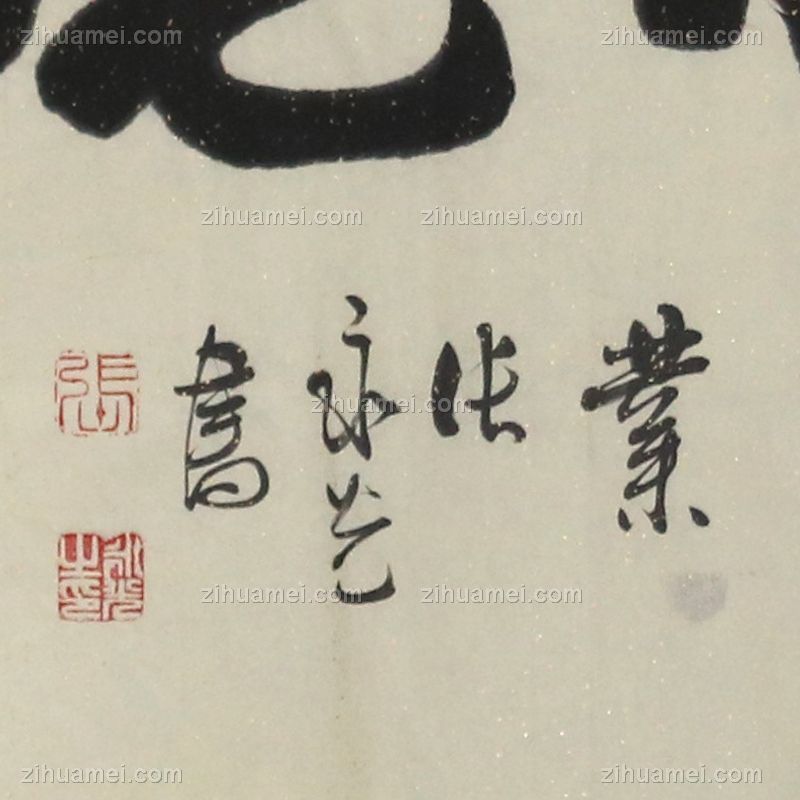 業
张
永光
書
張
永光之印
zihuamei.com zihuamei.com
zihuamei.com zihuamei.com
zihuamei.com zihuamei.com
zihuamei.com zihuamei.com
zihuamei.com zihuamei.com